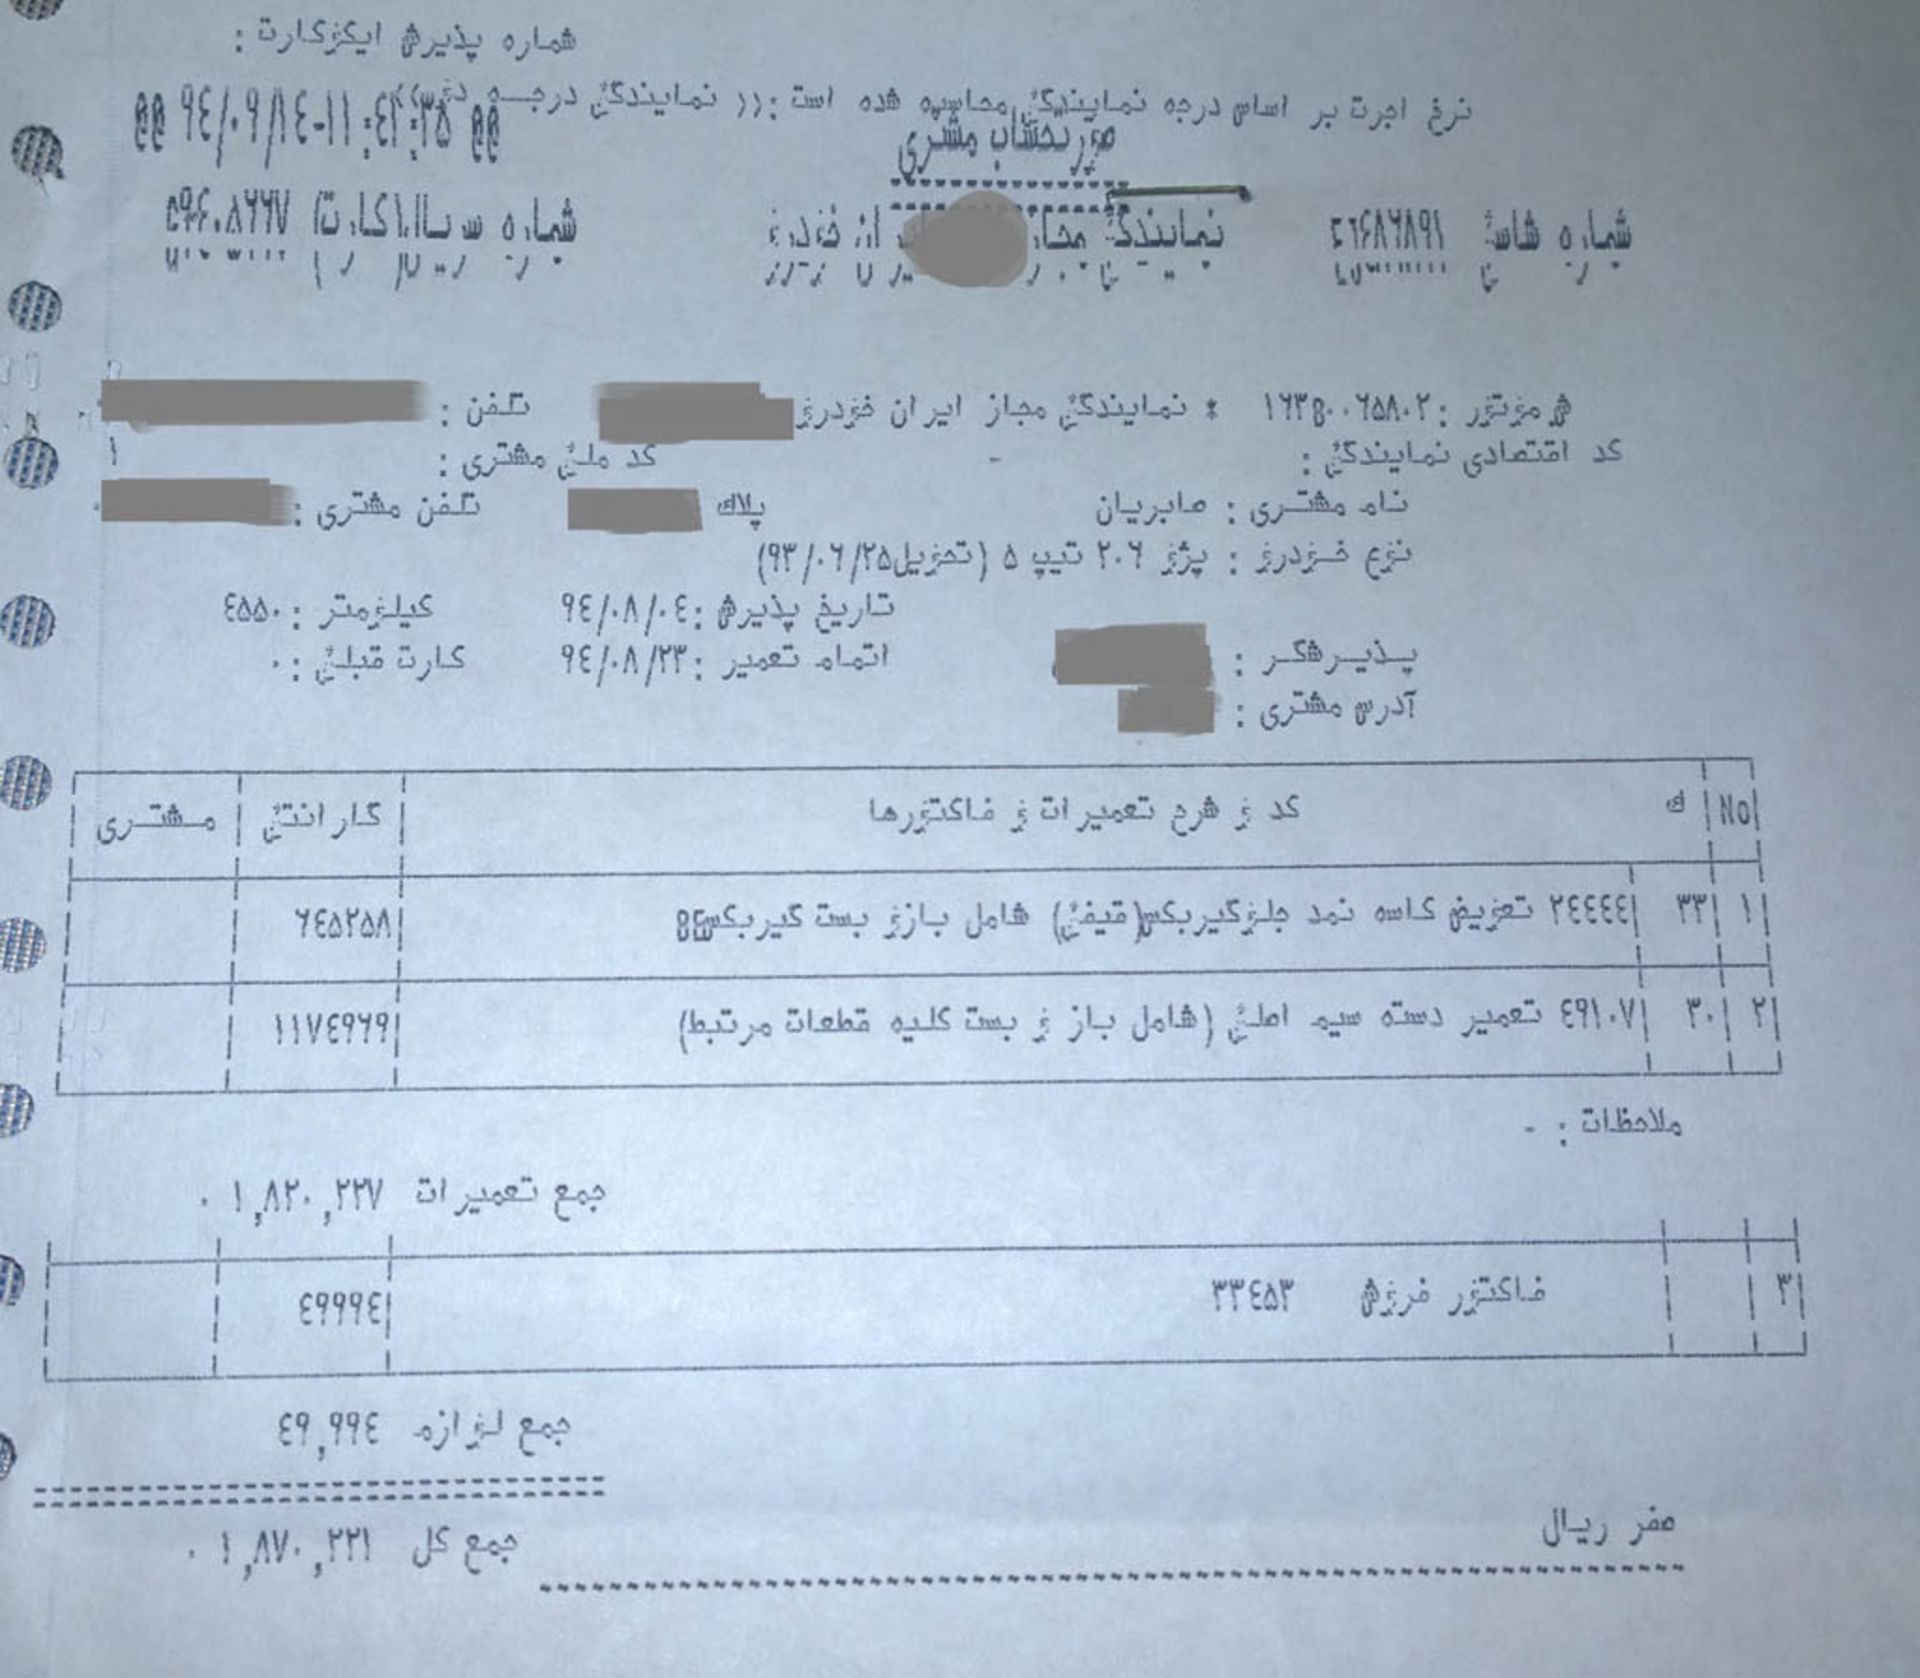 شماره پذیرش ایکزکارت :
نرخ اجرت بر اساس درجه نمایندگی محاسبه شده است :(( نمایندگی درجــه دو))
صورتحساب مشتری
@@ ۹٤/۰۹/۱٤-۱۱:٤۲:۳۵ @@
شماره شاسی نمایندگی مجاز ایران خودرو شماره سریال(کارت)
ش موتور :۱۶۳B۰۰۶۵۸۰۲ * نمایندگی مجاز ایران خودرو تلفن :
کد اقتصادی نمایندگی : - کد ملی مشتری : ۱
نام مشتری : صابریان پلاك تلفن مشتری :
نوع خودرو : پژو ۲۰۶ تیپ ۵ (تحویل۹۳/۰۶/۲۵)
تاریخ پذیرش :۹٤/۰۸/۰٤ کیلومتر :٤۵۵۰
پـذیـرشگـر : اتمام تعمیر :۹٤/۰۸/۲۳ کارت قبلی :۰
آدرس مشتری :
No ك کد و شرح تعمیرات و فاکتورها گارانتی مـشتـری
۱ ۳۳ ۲٤٤٤٤ تعویض کاسه نمد جلوگیربکس(قیفی) شامل بازو بست گیربکس ۶٤۵۲۵۸
۲ ۳۰ ٤۹۱۰۷ تعمیر دسته سیم اصلی (شامل باز و بست کلیه قطعات مرتبط) ۱۱۷٤۹۶۹
ملاحظات : -
جمع تعمیرات ۱,۸۲۰,۲۲۷ ۰
۳ فاکتور فروش ۳۳٤۵۳ ٤۹۹۹٤
جمع لوازم ٤۹,۹۹٤
صفر ریـال
جمع کل ۱,۸۷۰,۲۲۱ ۰